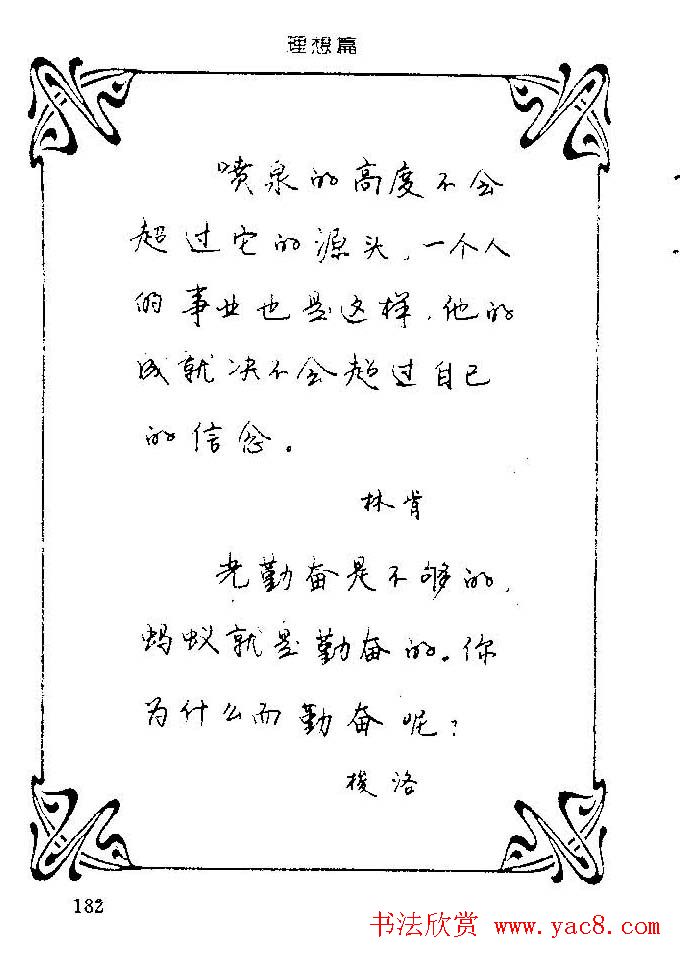 理想篇
喷泉的高度不会
超过它的源头，一个人
的事业也是这样，他的
成就决不会超过自己
的信念。
林肯
光勤奋是不够的，
蚂蚁就是勤奋的。你
为什么而勤奋呢？
梭洛
182
书法欣赏 www.yac8.com